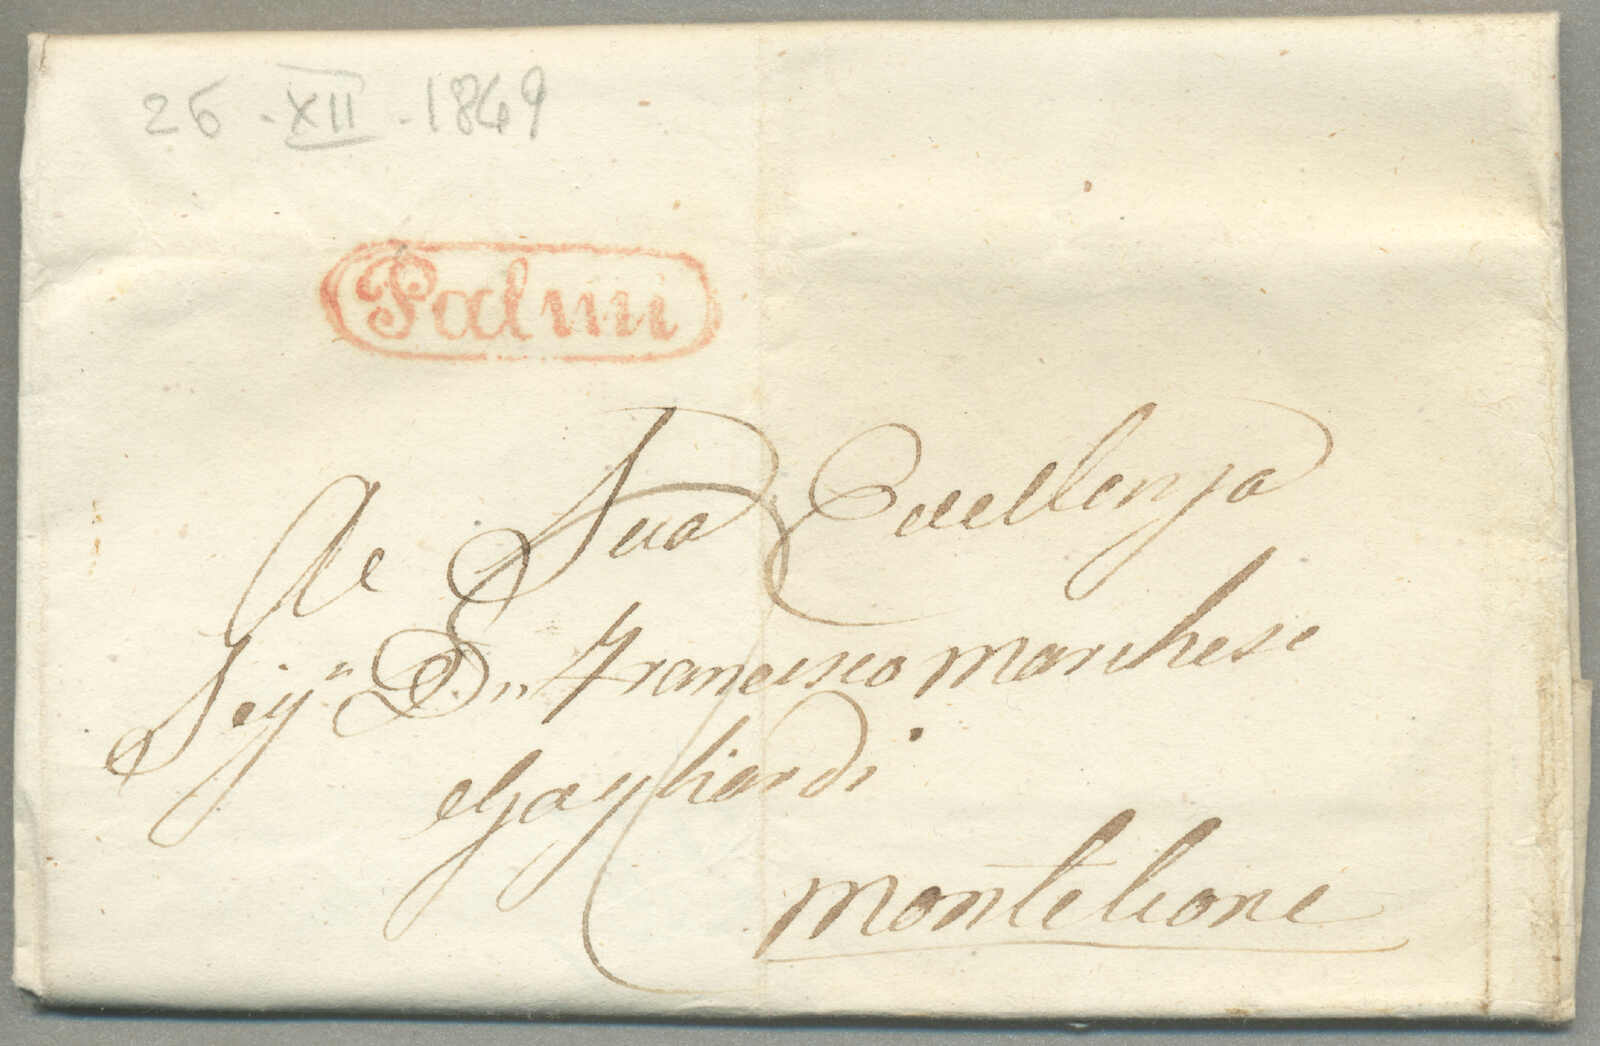 26 - XII - 1849
Palmi
A Sua Eccellenza
Sigr. Dn Francesco Marchese
Gagliardi
Monteleone